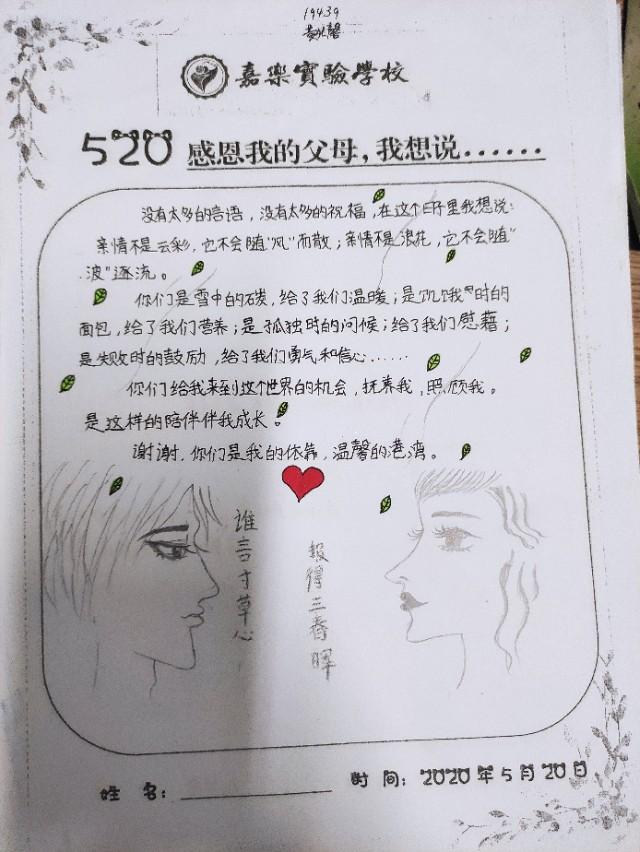 19439
嘉樂實驗學校
520 感恩我的父母,我想说......
没有太多的言语,没有太多的祝福,在这个日子里我想说:
亲情不是云彩,它不会随"风"而散;亲情不是浪花,它不会随"
波"逐流。
你们是雪中的碳,给了我们温暖;是饥饿时的
面包,给了我们营养;是孤独时的问候;给了我们慰藉;
是失败时的鼓励,给了我们勇气和信心……
你们给我来到这个世界的机会,抚养我,照顾我。
是这样的陪伴伴我成长。
谢谢,你们是我的依靠,温馨的港湾。
谁言寸草心
报得三春晖
姓 名:
时 间:2020年5月20日